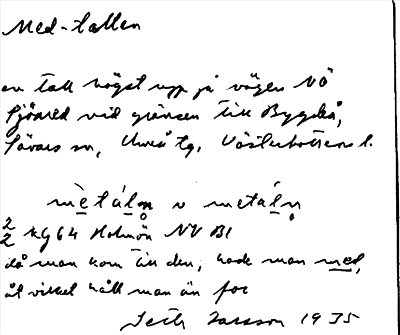 Med-tallen
en tall högst upp på vägen NÖ
Sjömed vid gränsen till Bygdeå,
Sävars sn, Umeå tg, Västerbottens l.
mètáln v metáln
2/2 kg 64 Holmön NV Bl
då man kom till den, hade man med,
åt vilket håll man än for
Seth Jansson 1935